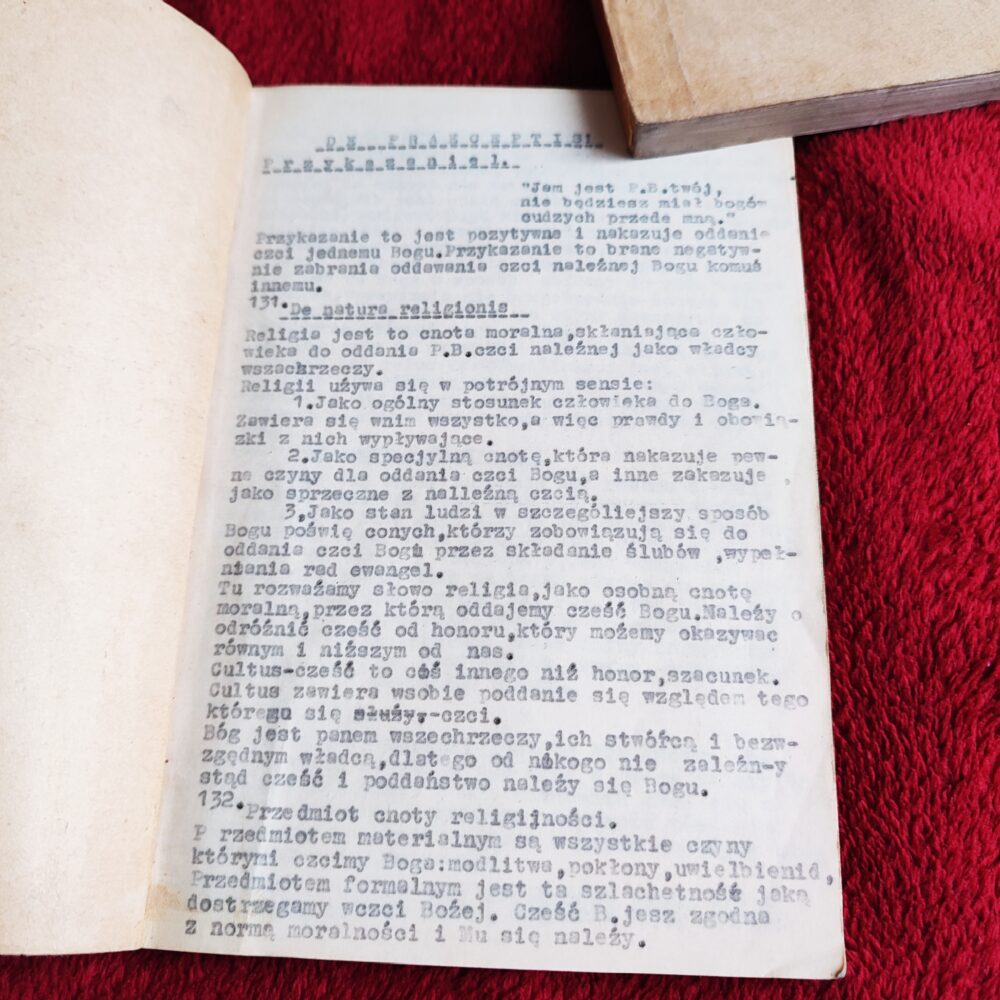 DE PRAECEPTIS!
Przykazanie1.
"Jam jest P.B.twój,
nie będziesz miał bogów
cudzych przede mną."
Przykazanie to jest pozytywne i nakazuje oddanie
czci jednemu Bogu.Przykazanie to brane negatyw-
nie zabrania oddawania czci należnej Bogu komuś
innemu.
131.De natura religionis
Religia jest to cnota moralna,skłaniająca czło-
wieka do oddania P.B.czci należnej jako władcy
wszachrzeczy.
Religii używa się w potrójnym sensie:
1.Jako ogólny stosunek człowieka do Boga.
Zawiera się wnim wszystko,a więc prawdy i obowią-
zki z nich wypływające.
2.Jako specjylną cnotę,która nakazuje pew-
ne czyny dla oddania czci Bogu,a inne zakazuje ,
jako sprzeczne z nalleźną czcią.
3,Jako stan ludzi w szczególiejszy sposób
Bogu poświę conych,którzy zobowiązują się do
oddania czci Bogu przez składanie ślubów ,wypeł-
niania rad ewangel.
Tu rozważamy słowo religia,jako osobną cnotę
moralną,przez którą oddajemy cześć Bogu.Należy o
odróźnić cześć od honoru,który możemy okazywac
równym i niższym od nas.
Cultus-cześć to coś innego niż honor,szacunek.
Cultus zawiera wsobie poddanie się względem tego
którego się służy,-czci.
Bóg jest panem wszechrzeczy,ich stwórcą i bezw-
zgędnym władcą,dlatego od nikogo nie zależn-y
stąd cześć i poddaństwo należy się Bogu.
132.Przedmiot cnoty religijności.
P rzedmiotem materialnym są wszystkie czyny
którymi czcimy Boga:modlitwa,pokłony,uwielbienid,
Przedmiotem formalnym jest ta szlachetność jaką
dostrzegamy wczci Bożej. Cześć B.jesz zgodna
z normą moralności i Mu się należy.